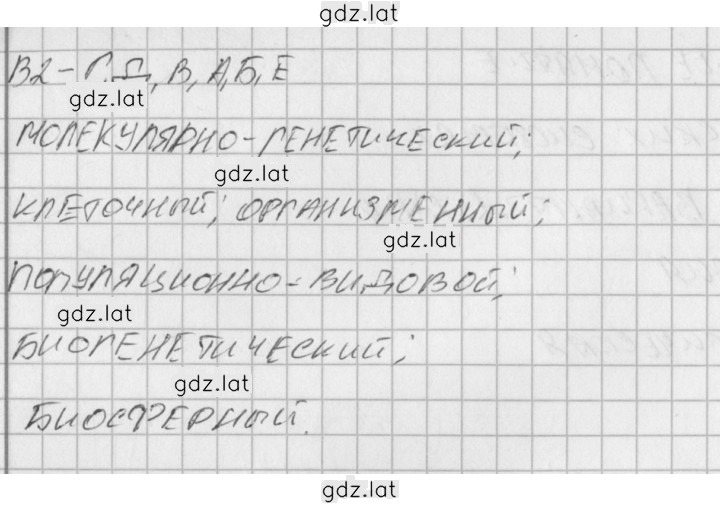 gdz.lat
В2 - Г, Д, В, А, Б, Е
gdz.lat
МОЛЕКУЛЯРНО-ГЕНЕТИЧЕСКИЙ;
gdz.lat
КЛЕТОЧНЫЙ; ОРГАНИЗМЕННЫЙ;
gdz.lat
ПОПУЛЯЦИОННО-ВИДОВОЙ;
gdz.lat
БИОГЕНЕТИЧЕСКИЙ;
gdz.lat
БИОСФЕРНЫЙ.
gdz.lat